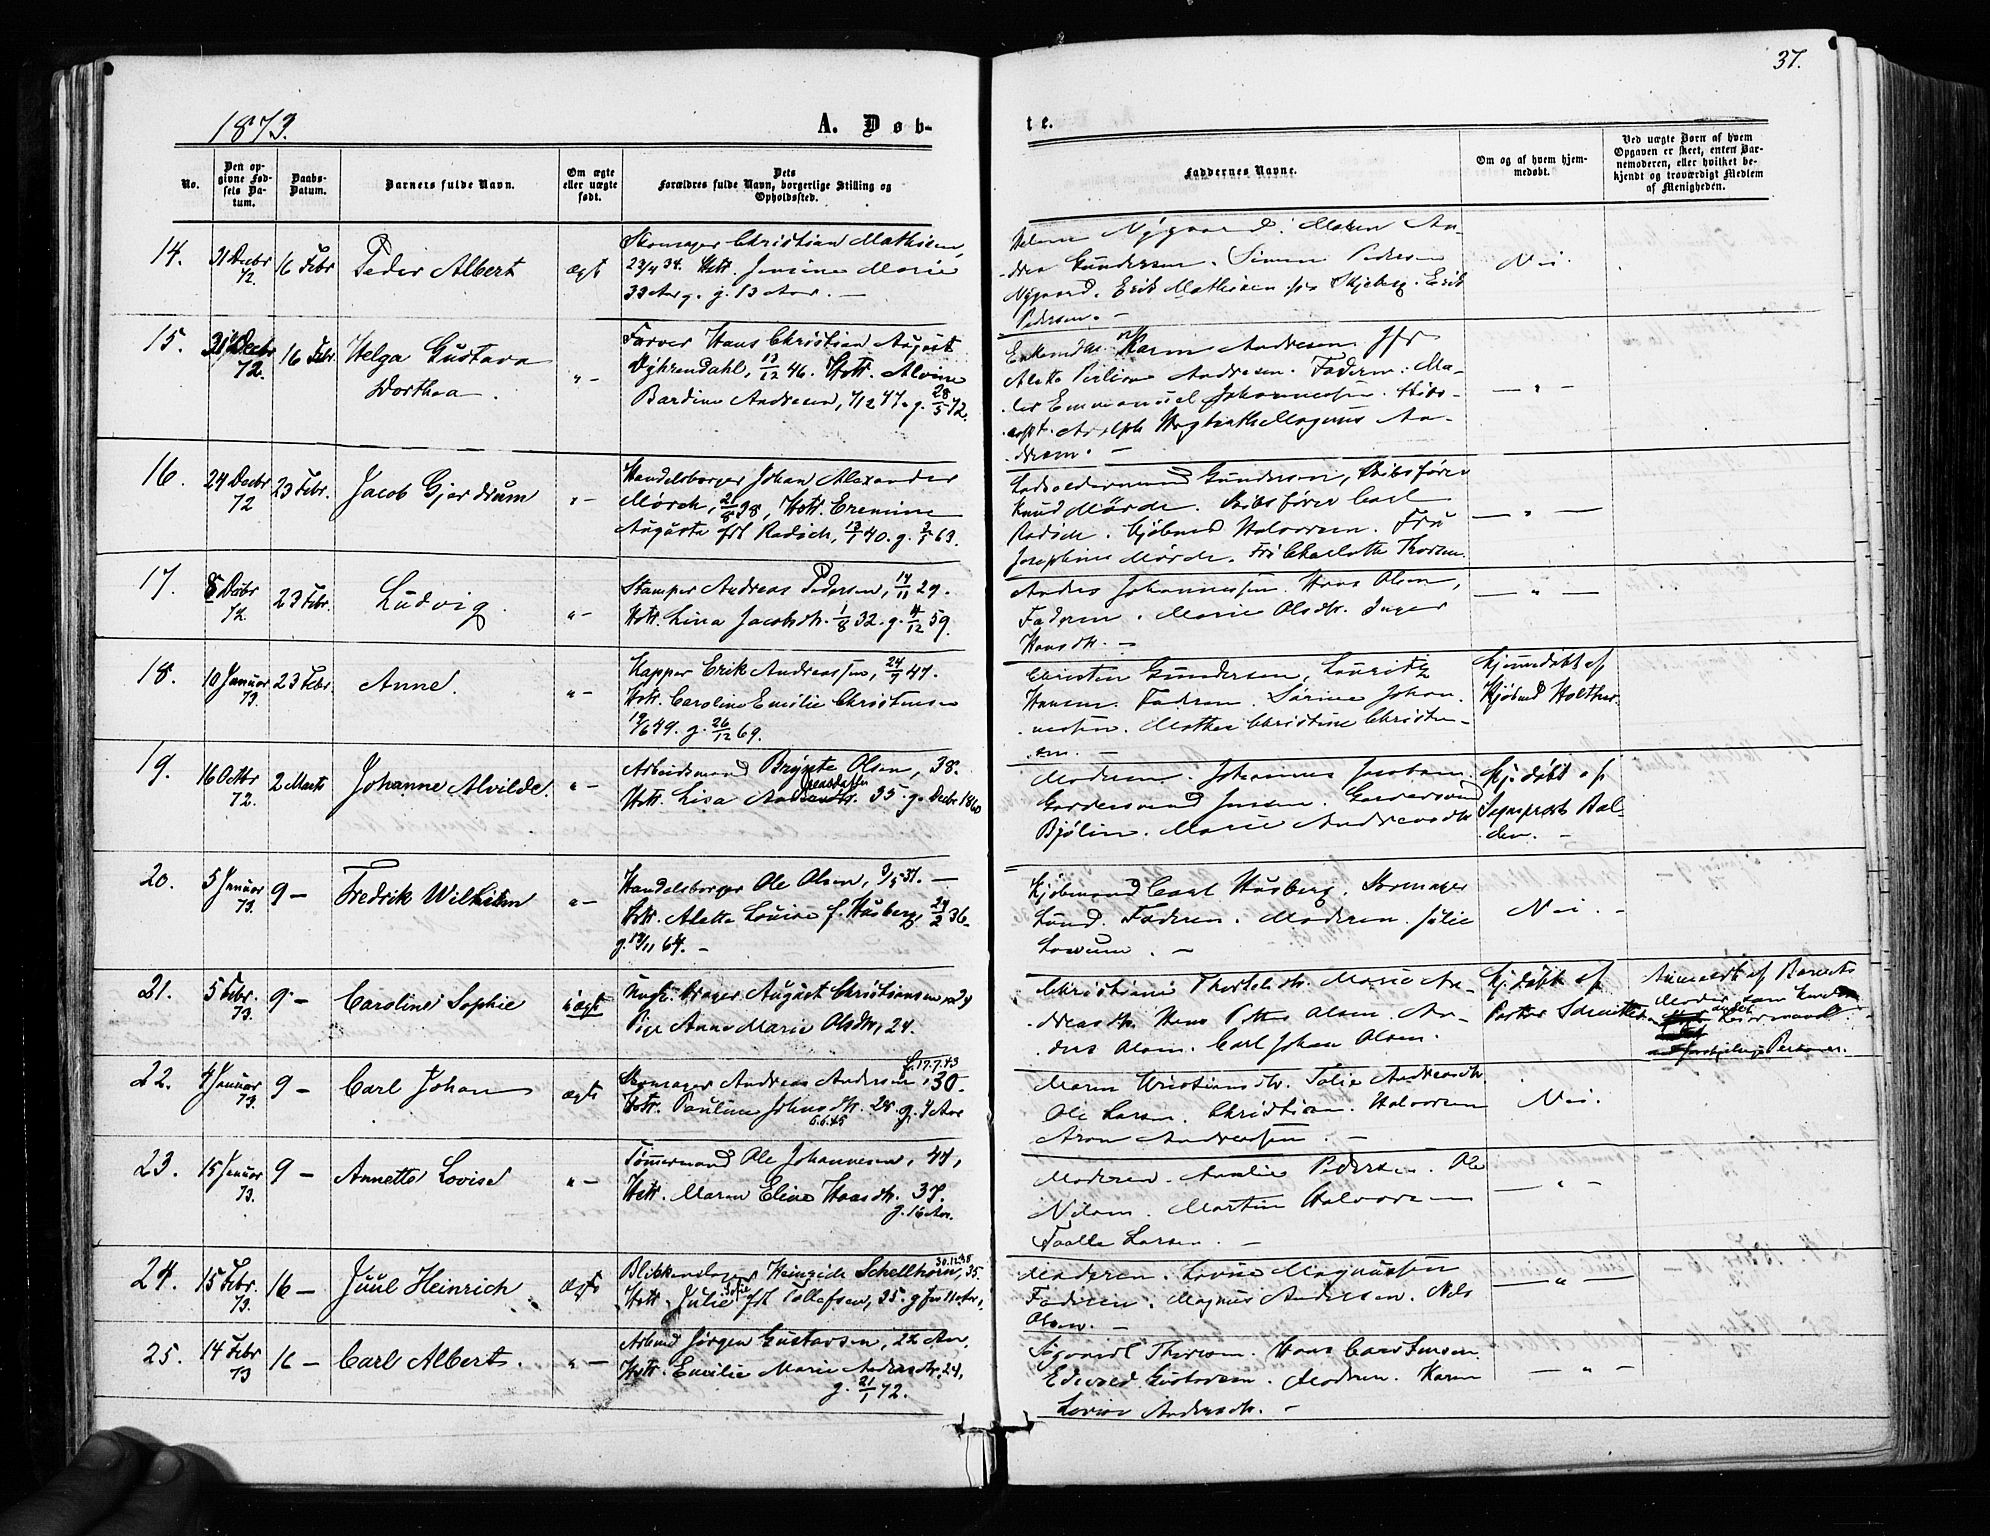 37.
1873.
A. Døb-
te.
No.
Den op-
givne Fød-
sels Da-
tum.
Daabs-
Datum.
Barnets fulde Navn.
Om ægte
eller uægte
født.
Dets
Forældres fulde Navn, borgerlige Stilling og
Opholdssted.
Faddernes Navne.
Om og af hvem hjem-
medøbt.
Ved uægte Børn af hvem
Opgaven er skeet, enten Bar-
nemoderen, eller hvilket be-
kjendt og troværdigt Medlem
af Menigheden.
14.
31 Decbr
72.
16 Febr
Peder Albert
ægt
Skomager Christian Mathisen,
23/4 34. Hstr. Jensine Marie
33 Aar. g. 13 Aar. —
Nygaard. Maren An-
drea Gundersen. Simen Pedersen
Nygaard. Erik Mathisen fra Skjeberg. Erik
Pedersen. —
Nei.
15.
31 Decbr
72.
16 Febr
Helga Gustava
Dorthea.
" —
Farver Hans Christian August
Dyhrendahl, 13/12 46. Hstr. Alvine
Bardine Andresen, 7/12 47. g. 28/5 72.
Karen Andresen. Jfr
Andresen. Faderen. Ma-
ler Emmanuel Johannesen. Skibs-
capt. Adolph Magnus An-
dresen. —
— " —
16.
24 Decbr
72
23 Febr.
Jacob Gjerdrum
" —
Handelsborger Johan Alexander
Mørch, 21/8 38, Hstr. Eremine
Augusta fdt Radich, 13/1 40. g. 2/5 63.
Gundersen, Skibsfører
Knud Mørch. Skibsfører Carl
Radich. Kjøbmd Halvorsen. Fru
Josephine Mørch. Fru Charlotte Thoresen.
— " —
17.
8 Decbr
72.
23 Febr.
Ludvig.
" —
Stamper Andreas Pedersen, 14/11 29.
Hstr. Lina Jacobsdtr. 1/8 32. g. 4/12 59.
Anders Johannessen. Hans Olsen,
Faderen. Marie Olsdtr. Inger
Hansdtr. —
— " —
18.
10 Januar
73.
23 Febr.
Anne.
" —
Kapper Erik Andreassen, 24/7 47.
Hstr. Caroline Emilie Christensen
19/6 49. g. 26/12 69.
Christen Gundersen, Lauritz
Hansen. Faderen. Sørine Johan-
nessen. Mathea Christine Christen-
sen. —
Hjemmedøbt af
Kjøbmd Holther.
19.
16 Octbr
72.
2 Marts
Johanne Alvilde.
" —
Arbeidsmand Brynte Olsen, 38.
Hstr. Lisa 35. g. Decbr 1860
Moderen. Johannes Jacobsen.
Gardersvend Jensen. Gardersvend
Bjølin. Marie Andreasdtr
Hj. døbt af
Sognepræst Bal-
den. —
20.
5 Januar
73.
9 —
Fredrik Wilhelm
" —
Handelsborger Ole Olsen, 3/5 37. —
Hstr. Alette Louise f. Husberg, 24/2 36.
g. 19/11 64. —
Kjøbmand Carl Husberg. Skomager
Lund. Faderen. Moderen. Julie
—
Nei. —
21.
5 Febr.
73.
9 —
Caroline Sophie
uægt
Ungk. August Christiansen og
Pige Anne Marie Olsdtr, 24.
Christiane Thorkelsdtr. Marie An-
dreasdtr. Hans Petter Olsen. An-
ders Olsen. Carl Johan Olsen.
Hj. døbt af
Anmeldt af Barnets
Moder
Personer.
22.
4 Januar
73.
9 —
Carl Johan
ægt
Skomager Andreas Andersen, 30.
f. 17.7.43
Hstr. Pauline Johnsdtr. 28 g. 7 Aar
6.6.45
Maren Kristiansdtr. Julie Andreasdtr.
Ole Larsen. Christian Halvorsen
Aron Andreassen. —
Nei.
23.
15 Januar
73.
9 —
Annette Lovise
" —
Tømmermand Ole Johannesen, 47,
Hstr. Maren Eline Hansdtr. 37.
g. 16 Aar.
Moderen. Amalie Pedersen. Ole
Nilsen. Martin Halvorsen
Larsen. —
— " —
24.
15 Febr.
73.
16 —
Juul Heinrich
Ægt
Blikkenslager Heinrich Schellhorn, 35.
30.12.38
Hstr. Julie Sofie fdt Tollefsen, 35. g for 11 Aar,
Moderen. Lovise Magnussen
Faderen. Magnus Andersen. Nels
Olsen. —
— " —
25.
14 Febr
73
16 —
Carl Albert.
" —
Arbmd Jørgen Gustavsen, 22 Aar.
Hstr. Emilie Marie Andreasdtr. 24,
g. 21/1 72.
Thoresen. Hans Carl Jensen.
Edvard Gustavsen. Moderen. Karen
Lovise Andersdtr. —
— " —